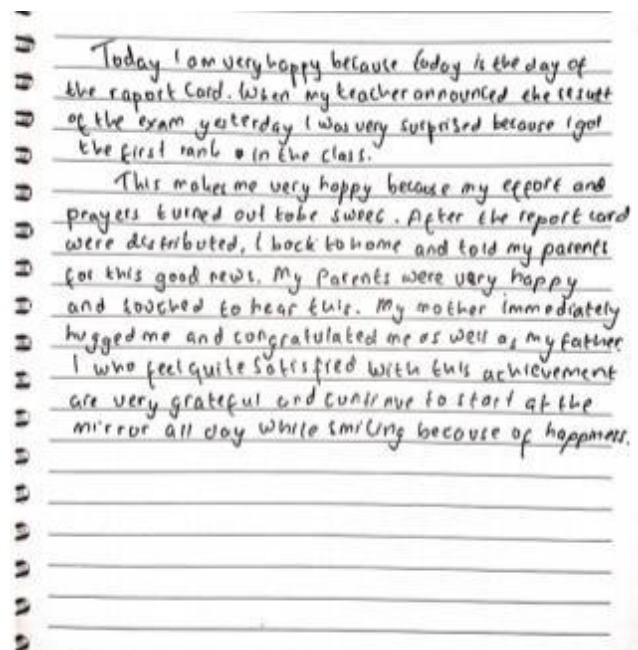 Today I am very happy because today is the day of
the raport card. When my teacher announced the result
of the exam yesterday I was very surprised because I got
the first rank in the class.
This makes me very happy because my effort and
prayers turned out tobe sweet. After the report card
were distributed, I back to home and told my parents
for this good news. My Parents were very happy
and touched to hear this. My mother immediately
hugged me and congratulated me as well as my father.
I who feel quite satisfied with this achievement
are very grateful and continue to start at the
mirror all day while smiling because of happiness.